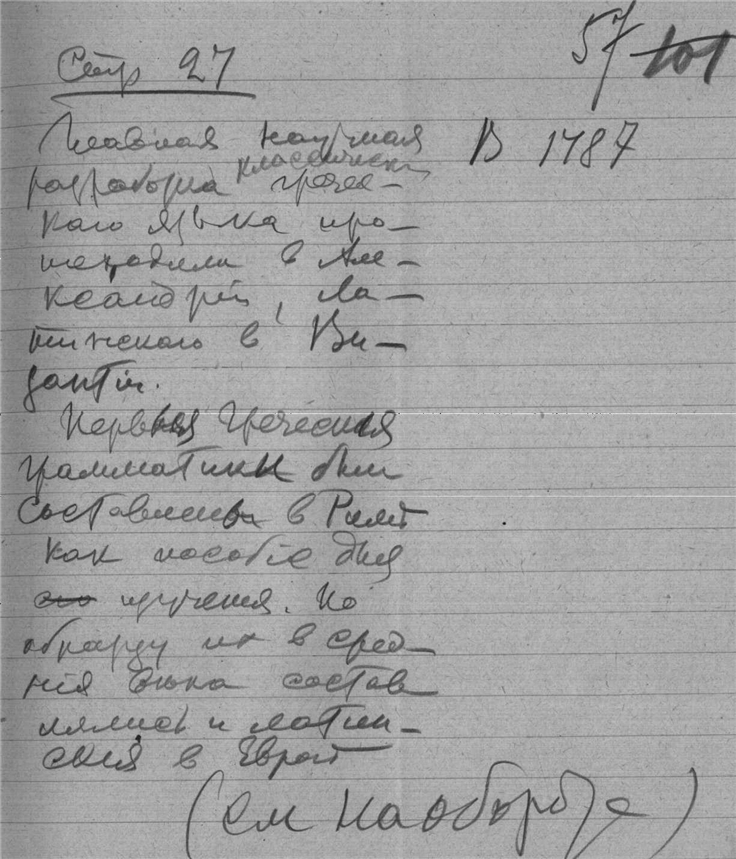 57 101
Стр 27
В 1787
Главная научная
классически
разработка гречес-
каго языка про-
исходила в Але-
ксандріи, Ла-
тинскаго в Ви-
зантіи.
Первыя Греческія
грамматики были
составлены в Римѣ
как пособіе для
его изученія. По
образцу их в сред-
нія вѣка состав
лялись и латин-
скія в Европѣ
(см на обороте)